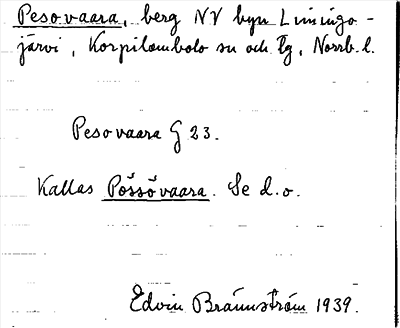 Pesovaara, berg NV byn Liningo-
järvi, Korpilombolo sn och tg, Norrb. l.
Pesovaara G 23.
Kallas Pössövaara. Se d.o.
Edvin Brännström 1939.